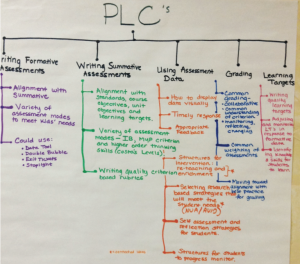 PLC's
riting Formative
Assessments
- Alignment with
Summative
- Variety of
assessment modes
to meet kids' needs
- Could use:
- Data Tool
- Double Bubble
- Exit Tickets
- Stoplight
Writing Summative
Assessments
- Alignment with
standards, course
objectives, unit
objectives and
learning targets.
- Variety of assessment
modes - IB, MYP criterion
and higher order thinking
skills (Costa's Levels)
- Writing quality criterion
based rubrics
Using Assessment
Data
- How to display
data visually
- Timely response
- Appropriate
feedback
- Structures for
intervention /
re-teaching and
enrichment
- Selecting research
based strategies that
will meet the
student needs
- Self assessment and
reflection strategies
for students
- Structures for students
to progress monitor
Grading
- Common
grading -
collaborative
- Common
understanding
of criterion
- monitoring,
reflecting
changing
- Common
weighting of
assessments
- Moving toward
alignment with
best practice
for grading
Learning
Targets
- Writing
quality
learning
targets